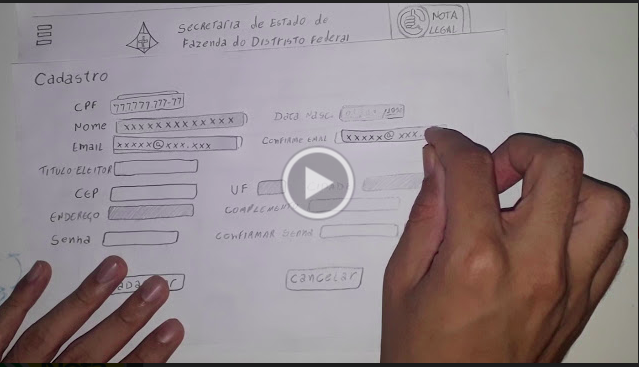 Secretaria de Estado de
Fazenda do Distrito Federal
NOTA
LEGAL
Cadastro
CPF 777.777.777-77
Nome xxxxxxxxxxxxx Data Nasc.
Email xxxxx@xxx.xxx CONFIRME EMAIL xxxxx@xxx
TITULO ELEITOR
CEP UF
ENDEREÇO COMPLEMEN
Senha CONFIRMAR Senha
Cancelar